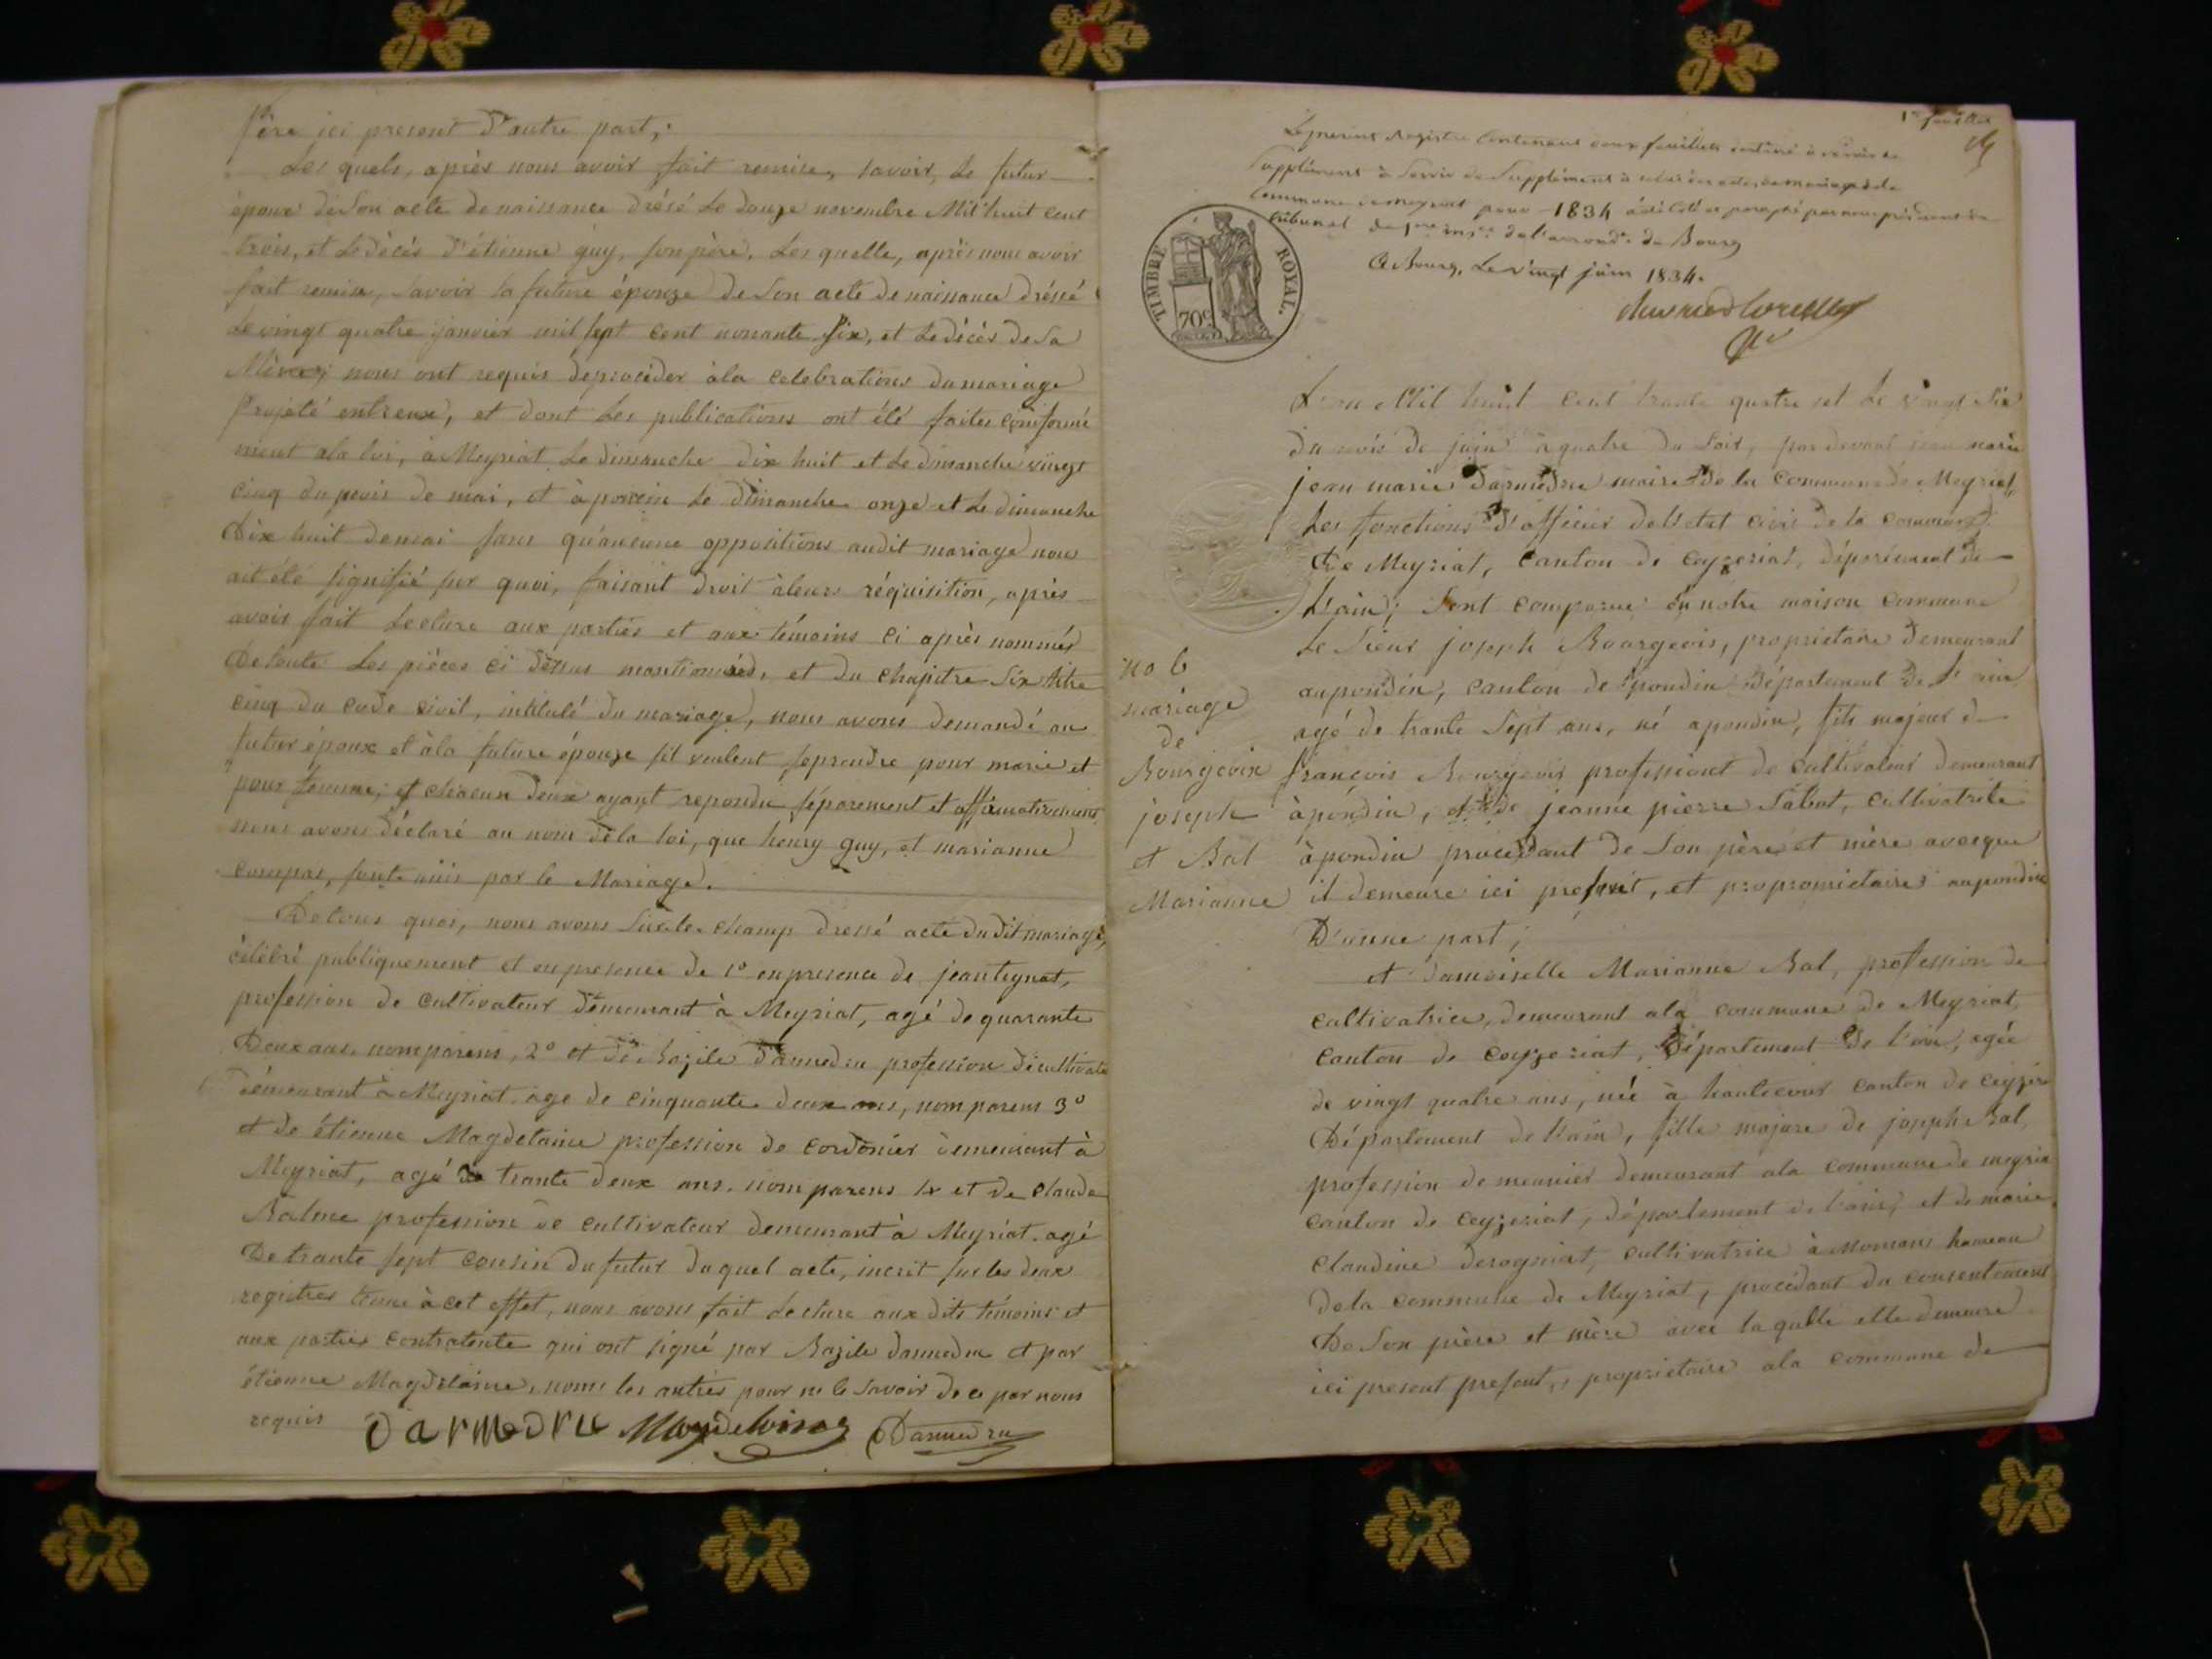 père ici present d'autre part;
Les quels, après nous avoir fait remise, savoir, le futur
époux de son acte de naissance drésé le douze novembre Mil huit cent
trois, et le décès d'étienne guy, son père, Les quelle, après nous avoir
fait remise, savoir la future épouze de son acte de naissance dréssé
le vingt quatre janvier mil sept cent nonante six, et le décès de sa
Mère, nous ont requis de procéder à la celebrations du mariage
projeté entreux, et dont les publications ont été faites conformé
ment a la loi, à Meyriat le dimanche dix huit et le dimanche vingt
cinq du mois de mai, et à poncin le dimanche onze et le dimanche
Dix huit de mai sans qu'aucune oppositions audit mariage nous
ait été signifié sur quoi, faisant droit à leurs réquisition, après
avoir fait lecture aux parties et aux témoins ci après nommés
De toute les pièces ci dessus mantionnéed, et du chapitre six titre
cinq du code civil, intitulé du mariage, nous avons demandé au
futur époux et à la future épouze sil veulent se prendre pour marie et
pour femme, et chacun deux ayant repondu séparement et affirmativement
nous avons déclaré au nom de la loi, que henry guy, et marianne
compas, sont unis par le Mariage.
De tous quoi, nous avons sur le champ dressé acte du dit mariage,
célébré publiquement et en presence de 1º en presence de jean teynat,
profession de cultivateur demeurant à Meyriat, agé de quarante
Deux ans. nom parens, 2º et de Bazile darmedru profession de cultivate
demeurant à Meyriat age de cinquante deux ans, nom parens 3º
et de étienne Magdelaine profession de cordonier demeurant à
Meyriat, agé de trante deux ans. nom parens 4 et de Claude
Balme profession de cultivateur demeurant à Meyriat. agé
De trante sept cousin du futur du quel acte, incrit sur les deux
registres tenue à cet effet, nous avons fait lecture aux dits témoins et
aux parties contratente qui ont signé par Bazile darmedru et par
étienne Magdelaine, nom les autres pour ne le savoir de ce par nous
requis
darmedru Magdelaine Darmedru
1er feuillet
Le present Registre contenant deux feuillets destiné à
Supplément à Servir de Supplément à celui des actes de mariage de la
Commune de meyriat pour 1834 a été coté et paraphé par nous président du
tribunal de 1re inst. de l'arrondt. de Bourg
A Bourg, Le vingt juin 1834.
TIMBRE ROYAL.
70c
L'an Mil huit cent trante quatre et le vingt six
du mois de juin à quatre du soir, par devant jean marie
jean marie darmedru maire de la commune de Meyriat,
les fonctions d'officier de l'etat civil de la commune
De Meyriat, canton de ceyzeriat, département de
L'ain; sont comparue en notre maison commune
Le sieur joseph Bourgeois, proprietaire demeurant
au pondin, canton de pondin département de l'ain
agé de trante sept ans, né a pondin, fils majeur de
françois Bourgeois professiont de cultivateur demeurant
à pondin, et de jeanne pierre Sabot, cultivatrice
à pondin procedant de son père et mère avecque
il demeure ici present, et propropriétaires au pondin
D'unne part;
et damoiselle Marianne Bal, profession de
cultivatrice, demeurant a la commune de Meyriat
canton de ceyzeriat, département de l'ain, agée
de vingt quatre ans, née à hautecour canton de ceyzeri
Département de l'ain, fille majeure de joseph Bal,
profession de meunier demeurant a la commune de meyria
canton de ceyzeriat, département de l'ain, et de marie
Claudine derogniat, cultivatrice à hameau
de la commune de Meyriat, procédant du consentement
De son père et mère avec la quelle elle demeure
ici present present, proprietaire a la commune de
no 6
mariage
de
Bourgeoix
joseph
et Bal
Marianne